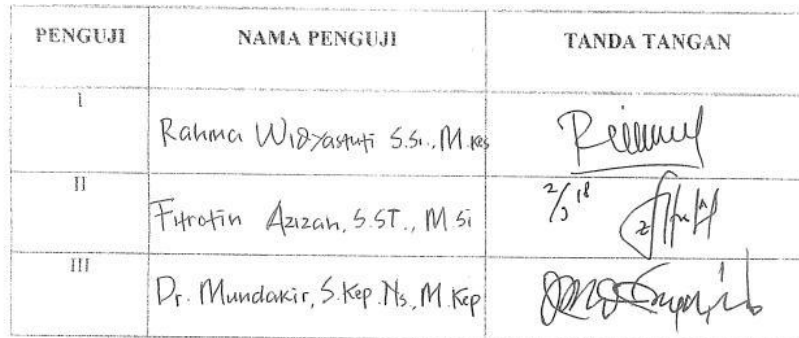 PENGUJI NAMA PENGUJI TANDA TANGAN
I Rahma Widyastuti S.Si., M.Kes
II Fitrotin Azizah, S.ST., M.Si 2/3 18
III Dr. Mundakir, S.Kep.Ns., M.Kep